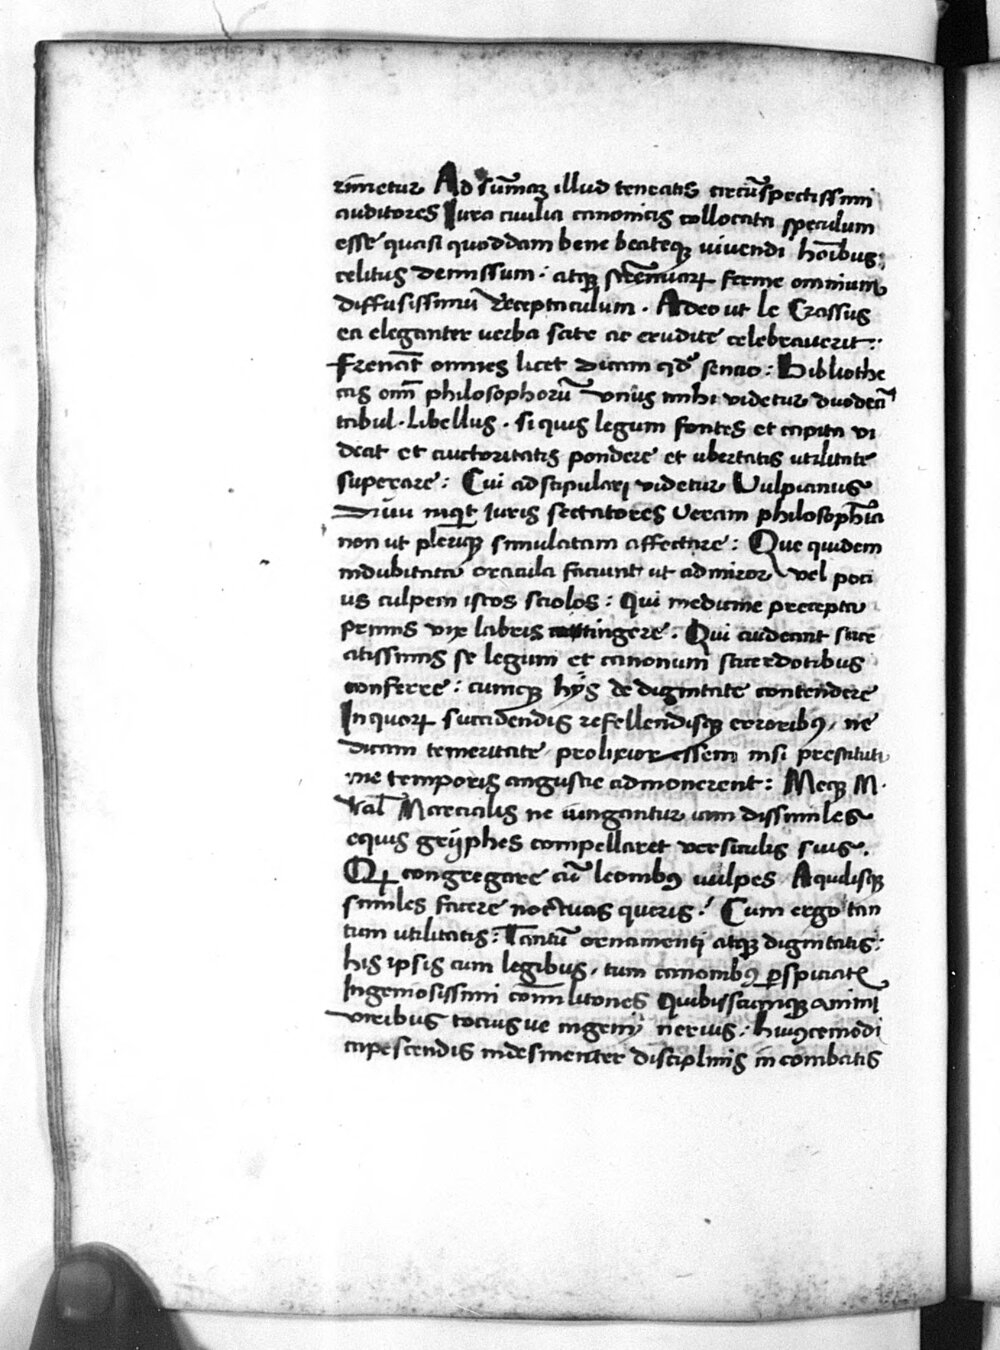 rimetur Ad sum̄aꝫ illud teneatis circūspectissimi
auditores Iura ciuilia canonicis collocata speculum
esse quasi quoddam bene beateqꝫ uiuendi hoībus
celitus demissum : atqꝫ ferme omnium
diffusissimū receptaculum . Adeo ut le Crassus
ea eleganter uerba scite ac erudite celebrauerit :
Fremāt omnes licet dicam qd̄ sencio : Bibliothe
cas om̄ philosophorū vnus mihi videtur duodecī
tabul . Libellus . si quis legum fontes et capita vi
deat et auctoritatis pondere et ubertatis utilitate
superare : Cui adstipulari videtur Vulpianus
Diuū inquit Iuris sectatores Veram philosophīa
non ut pleriqꝫ simulatam affectare : Que quidem
indubitata oracula faciunt ut admiror vel poti
us culpem istos sciolos : Qui medicine precepta
primis vix labris attingere . Qui audeant sacr
atissimis se legum et canonum sacerdotibus
conferre : cumqꝫ hijs de dignitate contendere
In quoꝝ succidendis refellendisqꝫ erroribꝰ , ne
dicam temeritate prolixior essem nisi prestituti
me temporis angustie admonerent : Meqꝫ M .
Val̄ Marcialis ne iungantur iam dissimiles
equis grijphes compellaret versiculis suis .
Qꝝ congregare cū leonibꝰ uulpes Aquilisqꝫ
similes facere noctuas queris : Cum ergo tan
tum utilitatis : Tantū ornamenti atqꝫ dignitatis :
his ipsis cum legibus , tum canonibꝰ ꝑspiciatꝭ
Ingeniosissimi com̄ilitones Quibusscumqꝫ animi
viribus tociusue ingenij neruis : huiꝰcemodi
capescendis indesinenter disciplinis incombatis